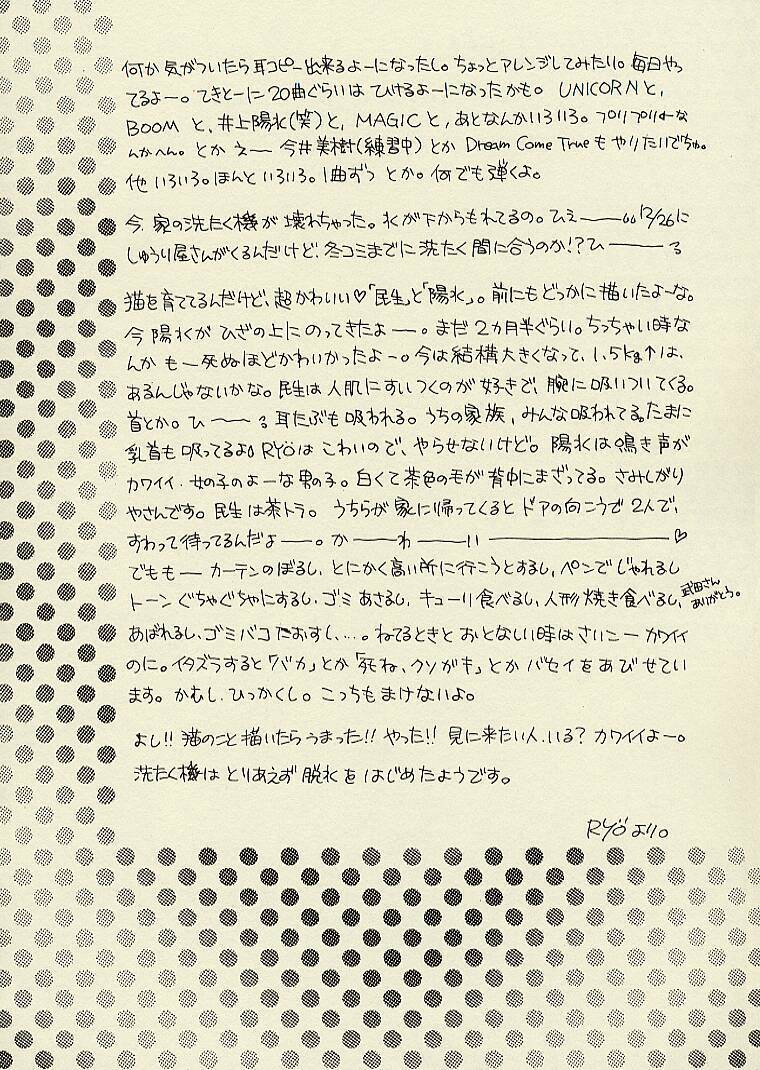 何か気がついたら耳コピー出来るよーになったし。ちょっとアレンジしてみたり。毎日やっ
てるよー。てきとーに20曲ぐらいはひけるよーになったかも。UNICORNと、
BOOMと、井上陽水(笑)と、MAGICと、あとなんかいろいろ。プリプリは
なんかへん。とかえー今井美樹(練習中)とかDream Come Trueもやりたいでちゅ。
他いろいろ。ほんといろいろ。1曲ずつとか。何でも弾くよ。
今、家の洗たく機が壊れちゃった。水が下からもれてるの。ひえ——。12/26に
しゅうり屋さんがくるんだけど、冬コミまでに洗たく間に合うのか!?ひ——る
猫を育ててるんだけど、超かわいい♡「民生」と「陽水」。前にもどっかに描いたよーな。
今陽水がひざの上にのってきたよー。まだ2ヵ月半ぐらい。ちっちゃい時な
んかもー死ぬほどかわいかったよー。今は結構大きくなって、1.5kg↑は、
あるんじゃないかな。民生は人肌にすいつくのが好きで、腕に吸いついてくる。
首とか。ひ——る耳たぶも吸われる。うちの家族、みんな吸われてる。たまに
乳首も吸ってるよ。RYÖはこわいので、やらせないけど。陽水は鳴き声が
カワイイ、女の子のよーな男の子。白くて茶色の毛が背中にまざってる。さみしがり
やさんです。民生は茶トラ。うちらが家に帰ってくるとドアの向こうで2人で、
すわって待ってるんだよー。か——わ——いい————♡
でももーカーテンのぼるし、とにかく高い所に行こうとするし、ペンでじゃれるし
トーンぐちゃぐちゃにするし、ゴミあさるし、キューリ食べるし、人形焼き食べるし、武田さんありがとう。
あばれるし、ゴミバコたおすし、…。ねてるときとおとなしい時はさいこーカワイイ
のに。イタズラすると「バカ」とか「死ね、クソがキ」とかバセイをあびせてい
ます。かむし、ひっかくし。こっちもまけないよ。
よし!!猫のこと描いたらうまった!!やった!!見に来たい人、いる?カワイイよー。
洗たく機はとりあえず脱水をはじめたようです。
RYÖより。